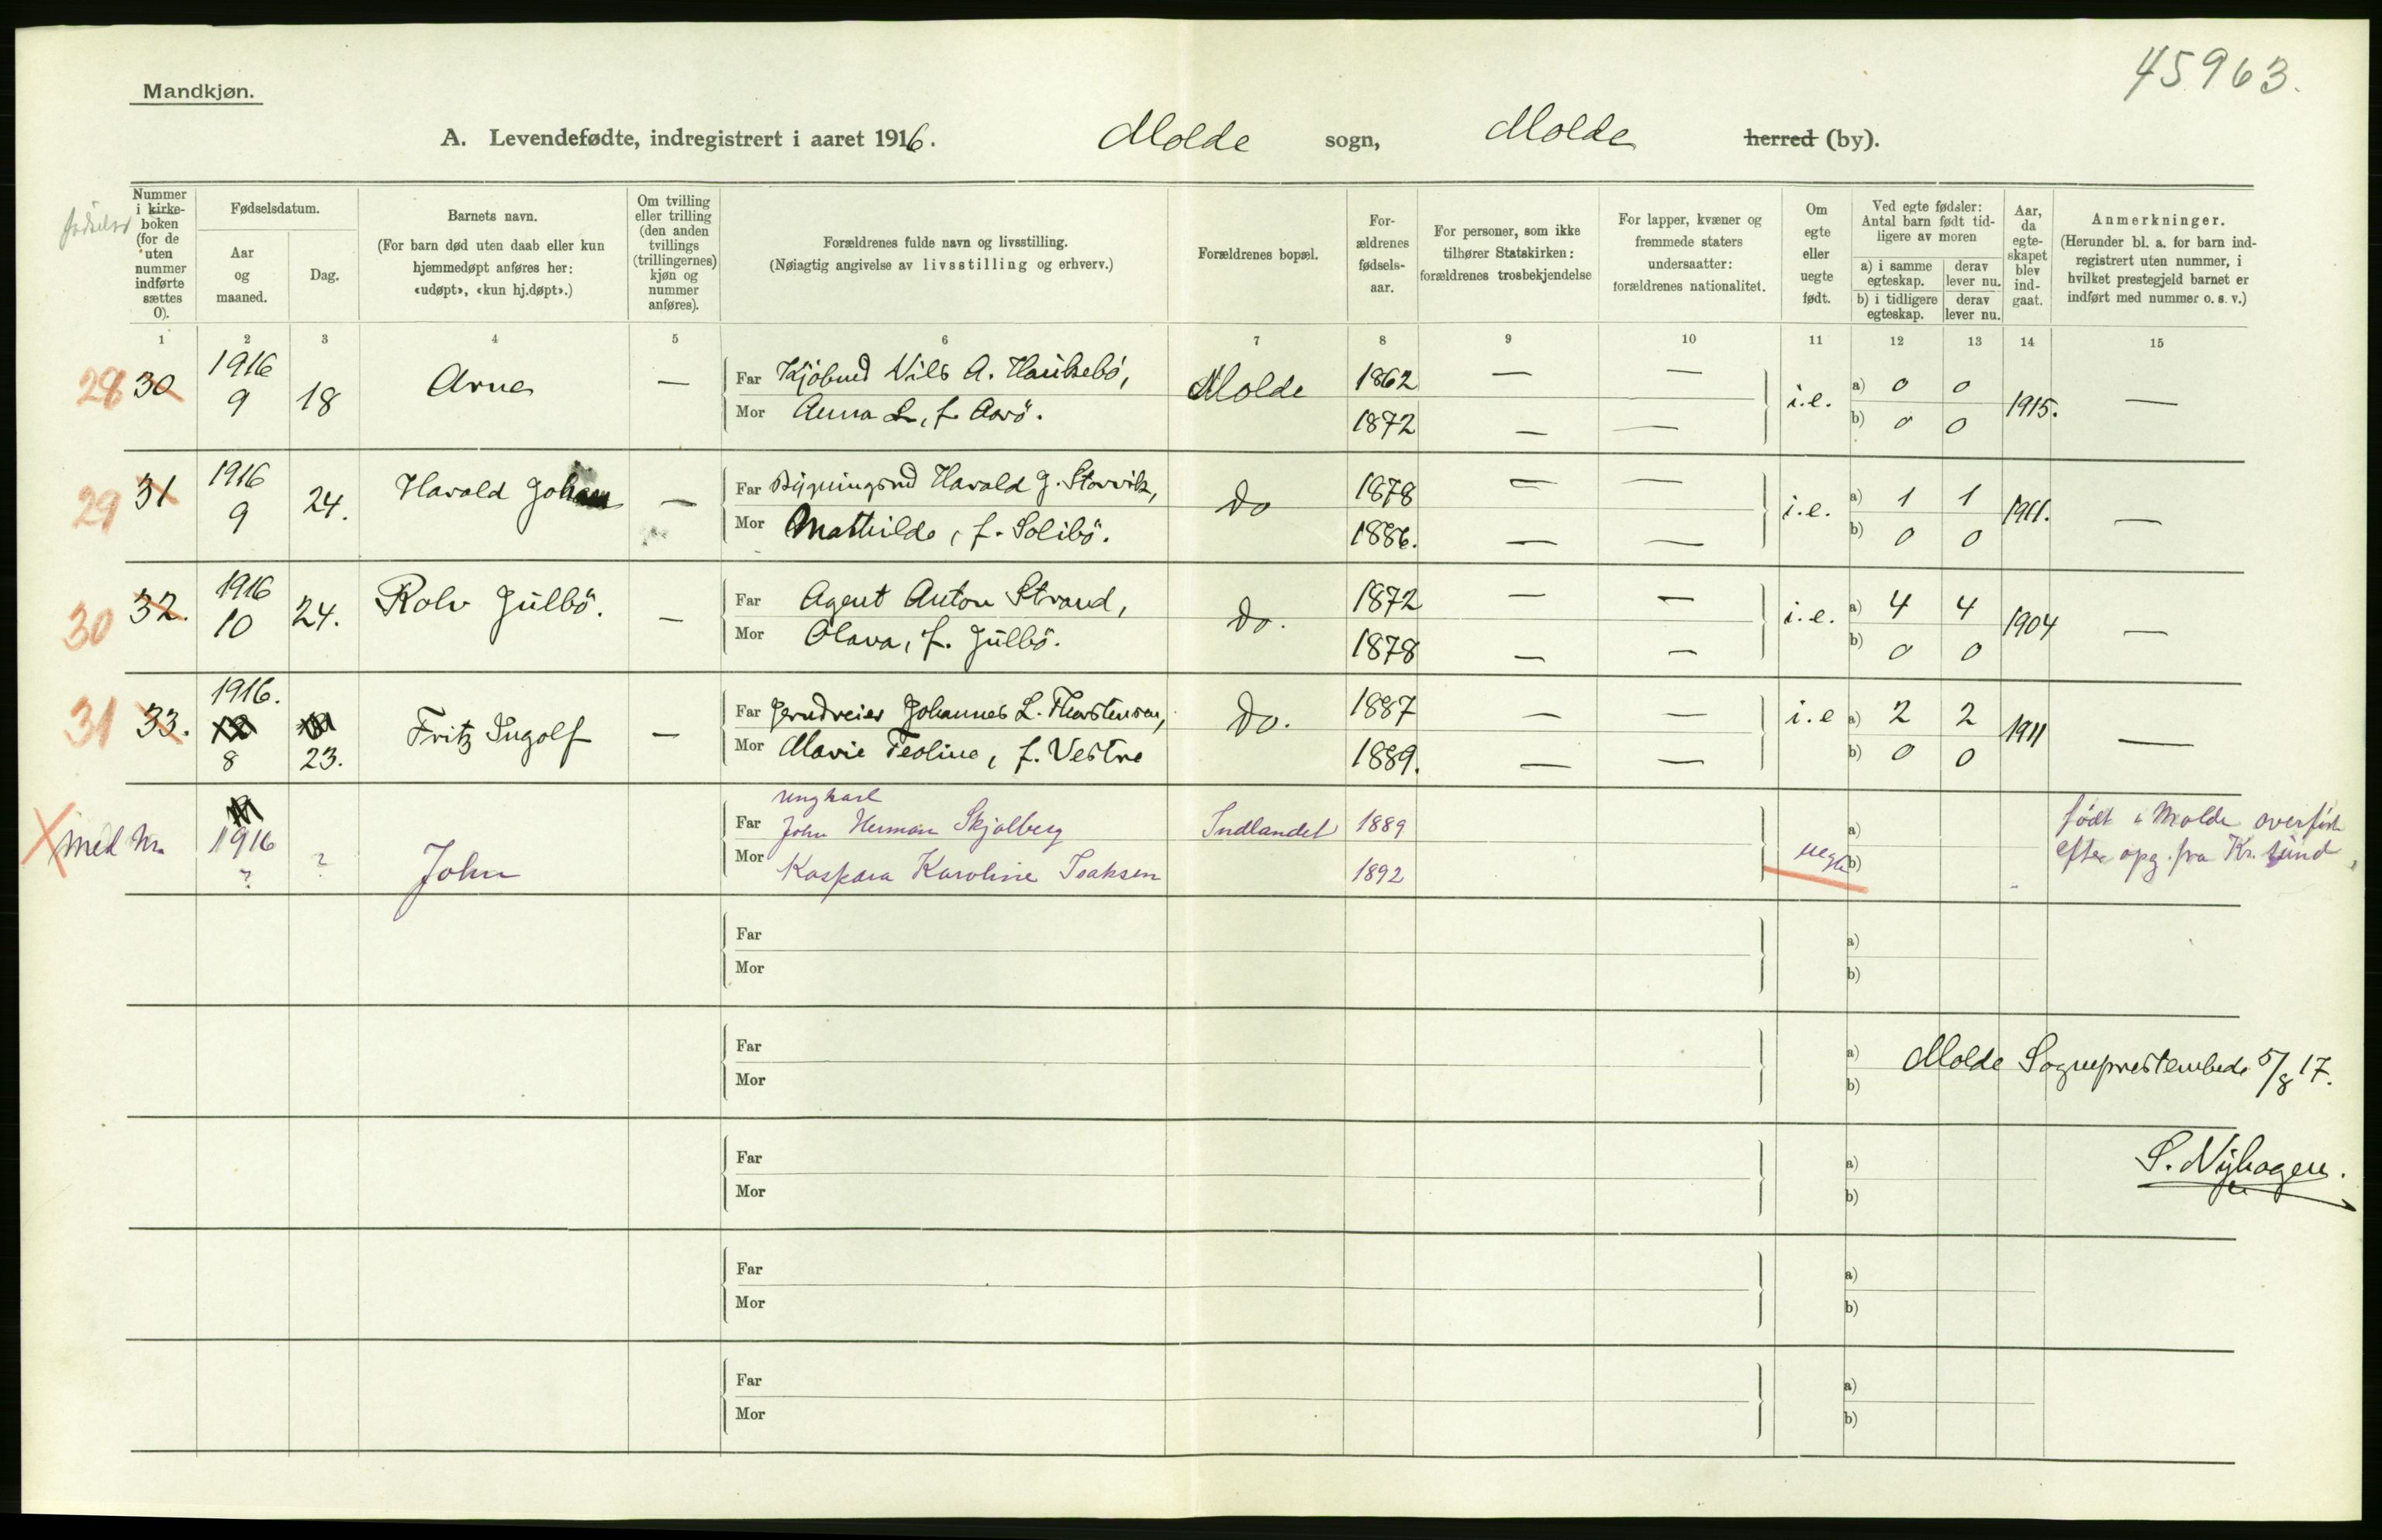 45963.
Mandkjøn.
A. Levendefødte, indregistrert i aaret 1916. Molde sogn, Molde herred (by).
fødselsr
Nummer i kirke-boken (for de uten nummer indførte sættes 0).
Fødselsdatum.
Aar og maaned.
Dag.
Barnets navn.
(For barn død uten daab eller kun hjemmedøpt anføres her: «udøpt», «kun hj.døpt».)
Om tvilling eller trilling (den anden tvillings (trillingernes) kjøn og nummer anføres).
Forældrenes fulde navn og livsstilling.
(Nøiagtig angivelse av livsstilling og erhverv.)
Forældrenes bopæl.
For-ældrenes fødsels-aar.
For personer, som ikke tilhører Statskirken: forældrenes trosbekjendelse
For lapper, kvæner og fremmede staters undersaatter: forældrenes nationalitet.
Om egte eller uegte født.
Ved egte fødsler: Antal barn født tid-ligere av moren
a) i samme egteskap. derav lever nu.
b) i tidligere egteskap. derav lever nu.
Aar, da egte-skapet blev ind-gaat.
Anmerkninger.
(Herunder bl. a. for barn ind-registrert uten nummer, i hvilket prestegjeld barnet er indført med nummer o. s. v.)
1 2 3 4 5 6 7 8 9 10 11 12 13 14 15
28 30 1916 9 18 Arne — Far Kjöbmd Nils A. Hauksebö, Molde 1862 — — i.e. a) 0 0 1915. —
Mor Anna L, f. Aarö. 1872 — — b) 0 0
29 31 1916 9 24. Harald Johan — Far Bygningsmd Harald J. Storvik, Do 1878 — — i.e. a) 1 1 1911. —
Mor Mathilde, f. Solibö. 1886. — — b) 0 0
30 32. 1916 10 24. Rolv Julbö. — Far Agent Anton Strand, Do. 1872 — — i.e. a) 4 4 1904 —
Mor Olava, f. Julbö. 1878 — — b) 0 0
31 33. 1916. 8 23. Fritz Ingolf — Far Johannes L. Thorstensen, Do. 1887 — — i.e a) 2 2 1911 —
Mor Marie Teoline, f. Vestre 1889. — — b) 0 0
X med Nr. 1916 ? ? John ungkarl
Far John Herman Skjolberg Indlandet 1889 uegte a) født i Molde overført
Mor Kaspara Karoline Isaksen 1892 b) efter opg. fra Kr.sund
Far a)
Mor b)
Far a) Molde Sogneprestembede 5/8 17.
Mor b)
Far a) S. Nyhagen.
Mor b)
Far a)
Mor b)
Far a)
Mor b)